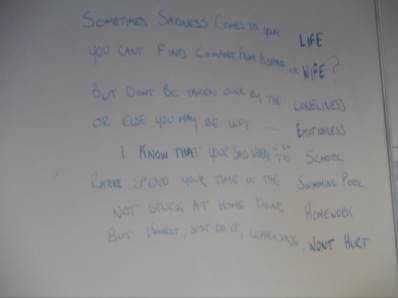 SOMETIMES SADNESS COMES TO YOUR LIFE
YOU CANT FIND COMFORT FROM HUSBAND OR WIFE?
BUT DONT BE TAKEN OVER BY THE LONELINESS
OR ELSE YOU MAY BE LEFT EMOTIONLESS
I KNOW THAT YOUR SAD WHEN TO SCHOOL
RATHER SPEND YOUR TIME IN THE SWIMMING POOL
NOT STUCK AT HOME DOING HOMEWORK
BUT HONEST, JUST DO IT, LEARNING, WONT HURT